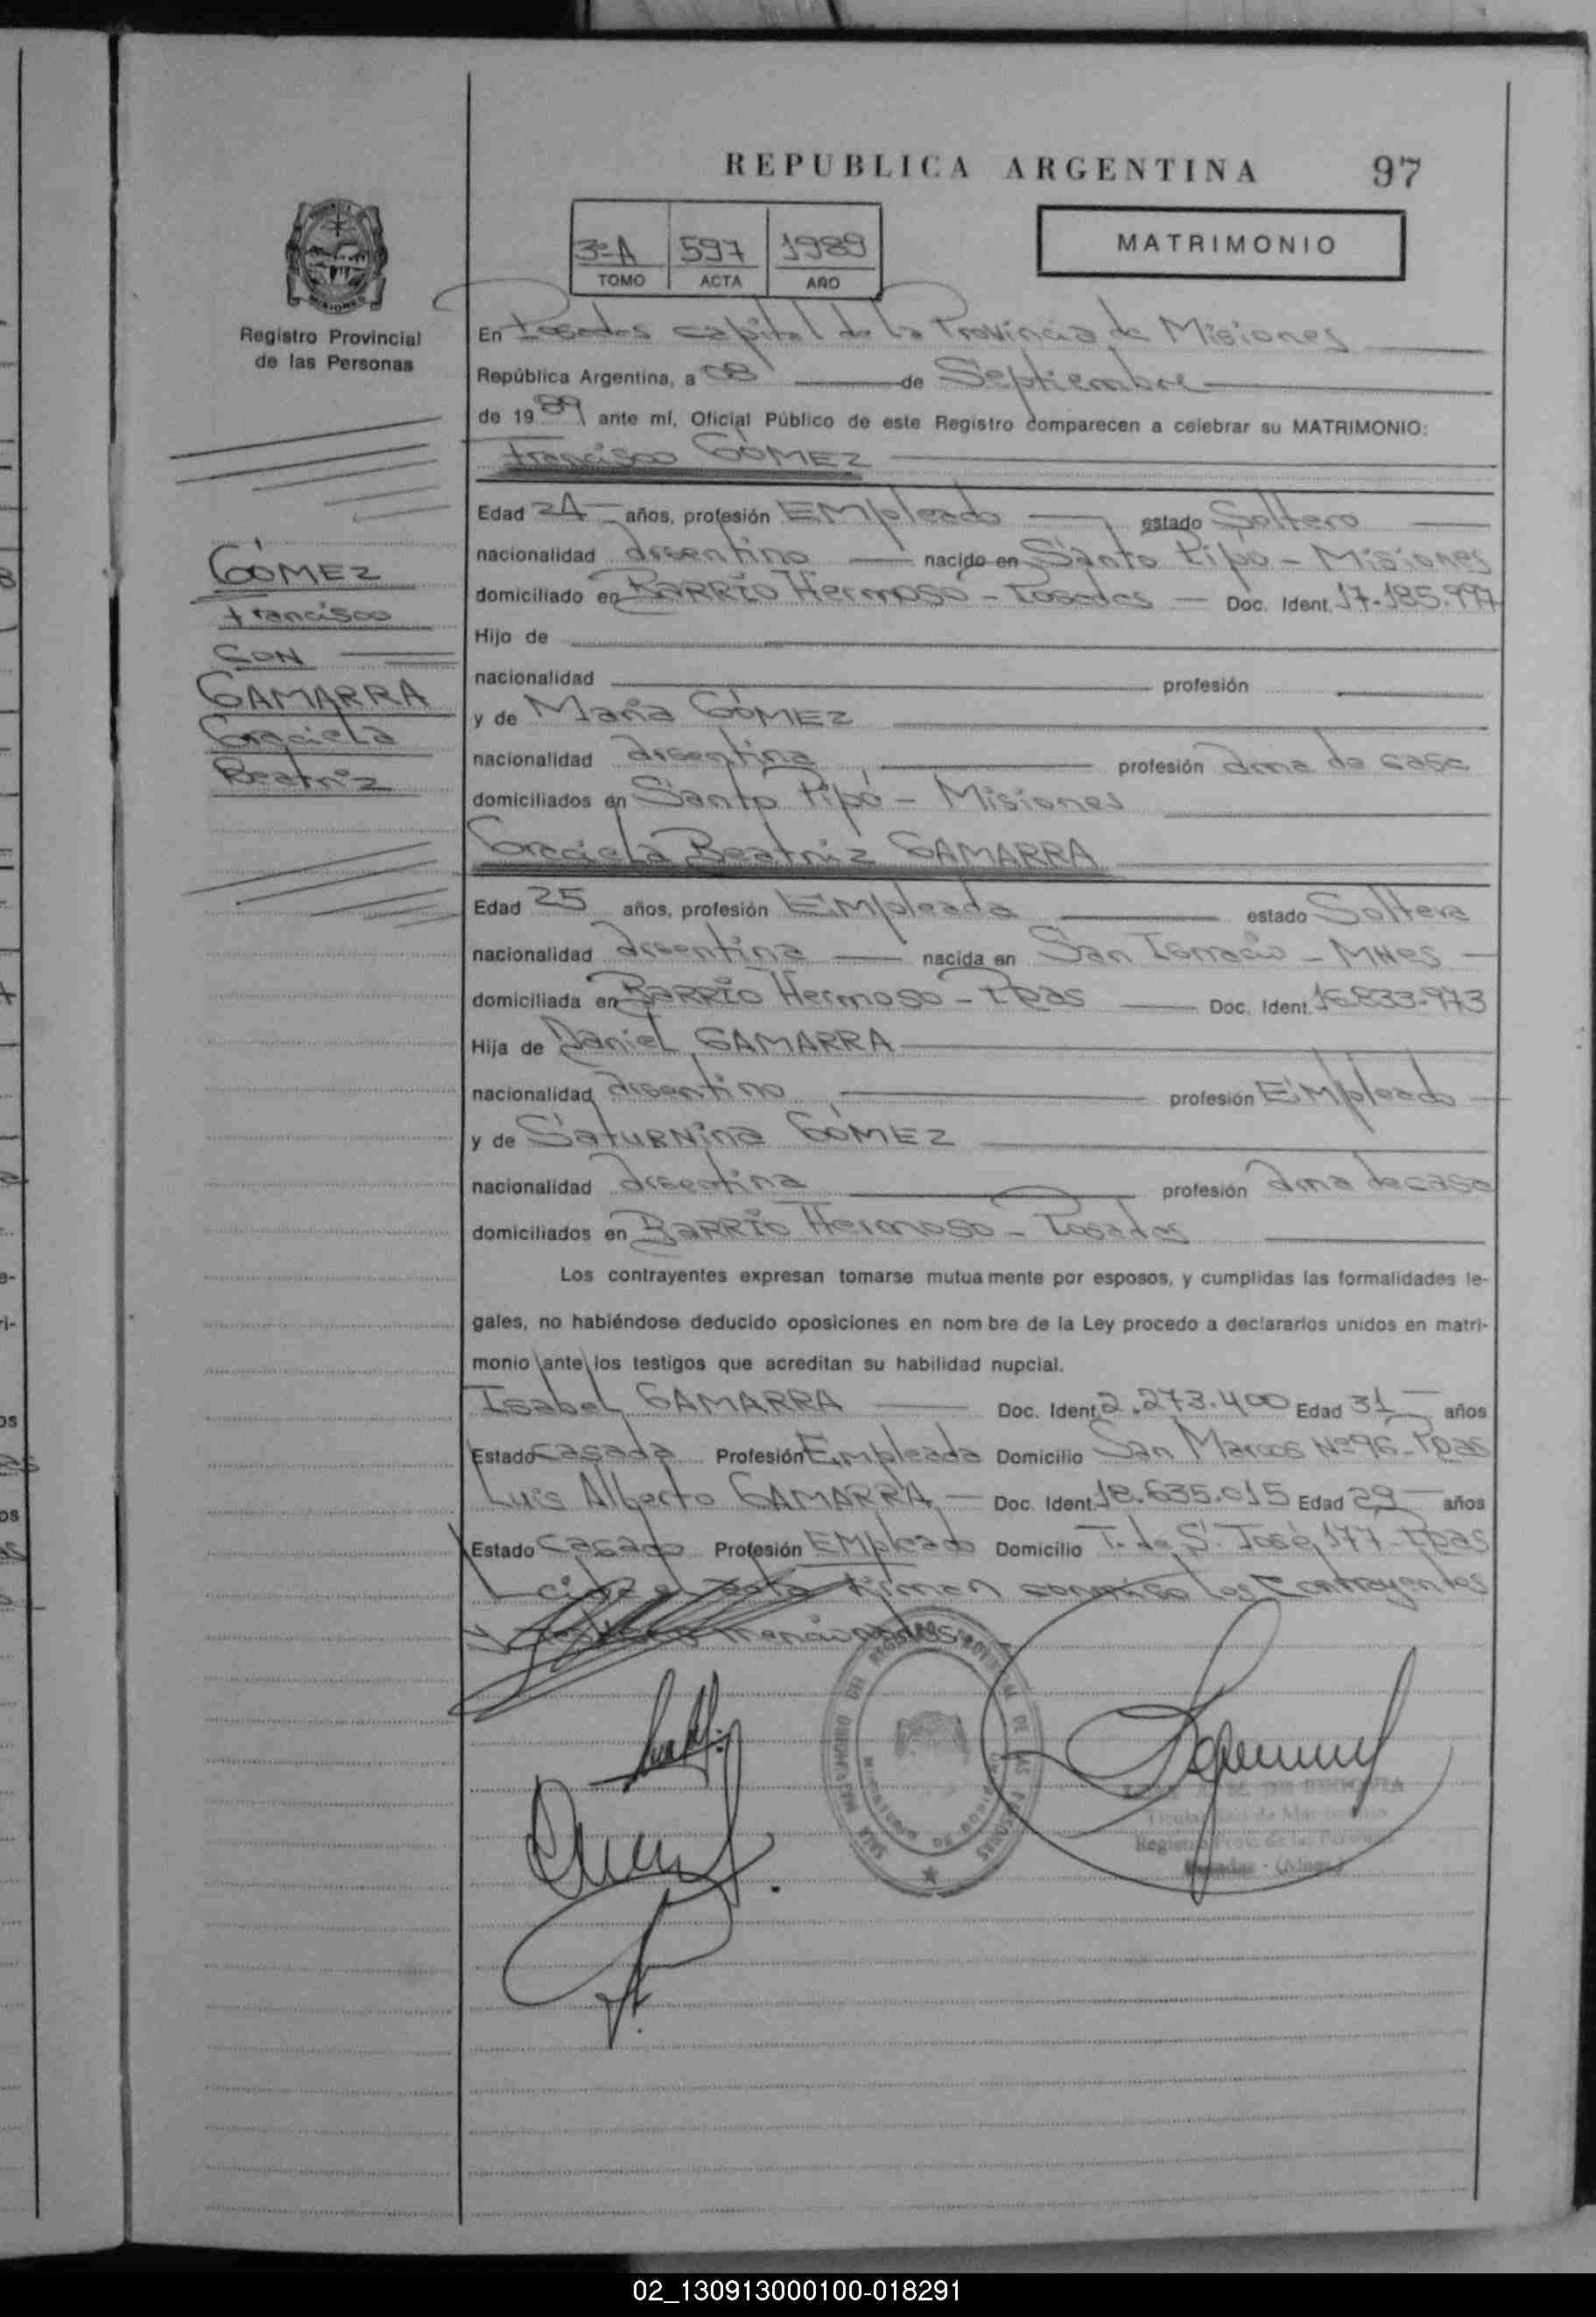 REPUBLICA ARGENTINA 97
3º-A 597 1989
TOMO ACTA AÑO
MATRIMONIO
PROVINCIA MISIONES
Registro Provincial
de las Personas
En Posadas capital de la Provincia de Misiones
República Argentina, a 08 de Septiembre
de 1989 ante mí, Oficial Público de este Registro comparecen a celebrar su MATRIMONIO:
Francisco GÓMEZ
Edad 24 años, profesión Empleado estado Soltero
nacionalidad argentino nacido en Santo Pipó - Misiones
domiciliado en Barrio Hermoso - Posadas Doc. Ident. 17.185.997
Hijo de
nacionalidad profesión
y de María GÓMEZ
nacionalidad argentina profesión ama de casa
domiciliados en Santo Pipó - Misiones
GÓMEZ
Francisco
CON
GAMARRA
Graciela
Beatriz
Graciela Beatriz GAMARRA
Edad 25 años, profesión Empleada estado Soltera
nacionalidad argentina nacida en San Ignacio - Mnes
domiciliada en Barrio Hermoso - Pdas Doc. Ident. 16.833.973
Hija de Daniel GAMARRA
nacionalidad argentino profesión Empleado
y de Saturnina GÓMEZ
nacionalidad argentina profesión ama de casa
domiciliados en Barrio Hermoso - Posadas
Los contrayentes expresan tomarse mutuamente por esposos, y cumplidas las formalidades le-
gales, no habiéndose deducido oposiciones en nombre de la Ley procedo a declararlos unidos en matri-
monio ante los testigos que acreditan su habilidad nupcial.
Isabel GAMARRA Doc. Ident. 2.273.400 Edad 31 años
Estado casada Profesión Empleada Domicilio San Marcos Nº 96 - Pdas
Luis Alberto GAMARRA Doc. Ident. 18.635.015 Edad 29 años
Estado Casado Profesión Empleado Domicilio T. de S. José 177 - Pdas
Leída el acta firman conmigo los Contrayentes
y testigos mencionados
Registro Prov. de las Personas
Posadas - (Mnes.)
02_130913000100-018291